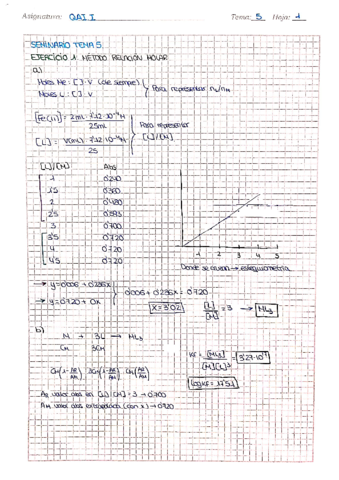 Asignatura: QAI.I. Tema: 5 Hoja: 1
SEMINARIO TEMA 5.
EJERCICIO 1. MÉTODO RELACIÓN MOLAR
a)
Moles Me: [ ]·V (de siempre)
Moles L: [ ]·V
Para representar nL/nM
[Fe(II)] = 2mL · 7'12·10⁻⁴M
25mL
[L] = V(mL)·7'12·10⁻⁴M
25
Para representar
[L]/[M]
[L]/[M] Abs
1 0'240
1'5 0'360
2 0'480
2'5 0'593
3 0'700
3'5 0'720
4 0'720
4'5 0'720
1 2 3 4
Donde se cruzan → estequiometría
→ y = 0'006 + 0'236x
→ y = 0'720 + 0x
0'006 + 0'236x = 0'720
X = 3'02
[L]/[M] = 3 → ML₃
b)
M + 3L → ML₃
CM 3CM
KF = [ML₃]/[M][L]³ = 3'27·10¹⁷
CM(1 - AE/AM) 3CM(1 - AE/AM) CM(AE/AM)
log KF = 17'51
AE valor abs en [L]/[M] = 3 → 0'700
AM valor abs extrapolada (con x) → 0'720